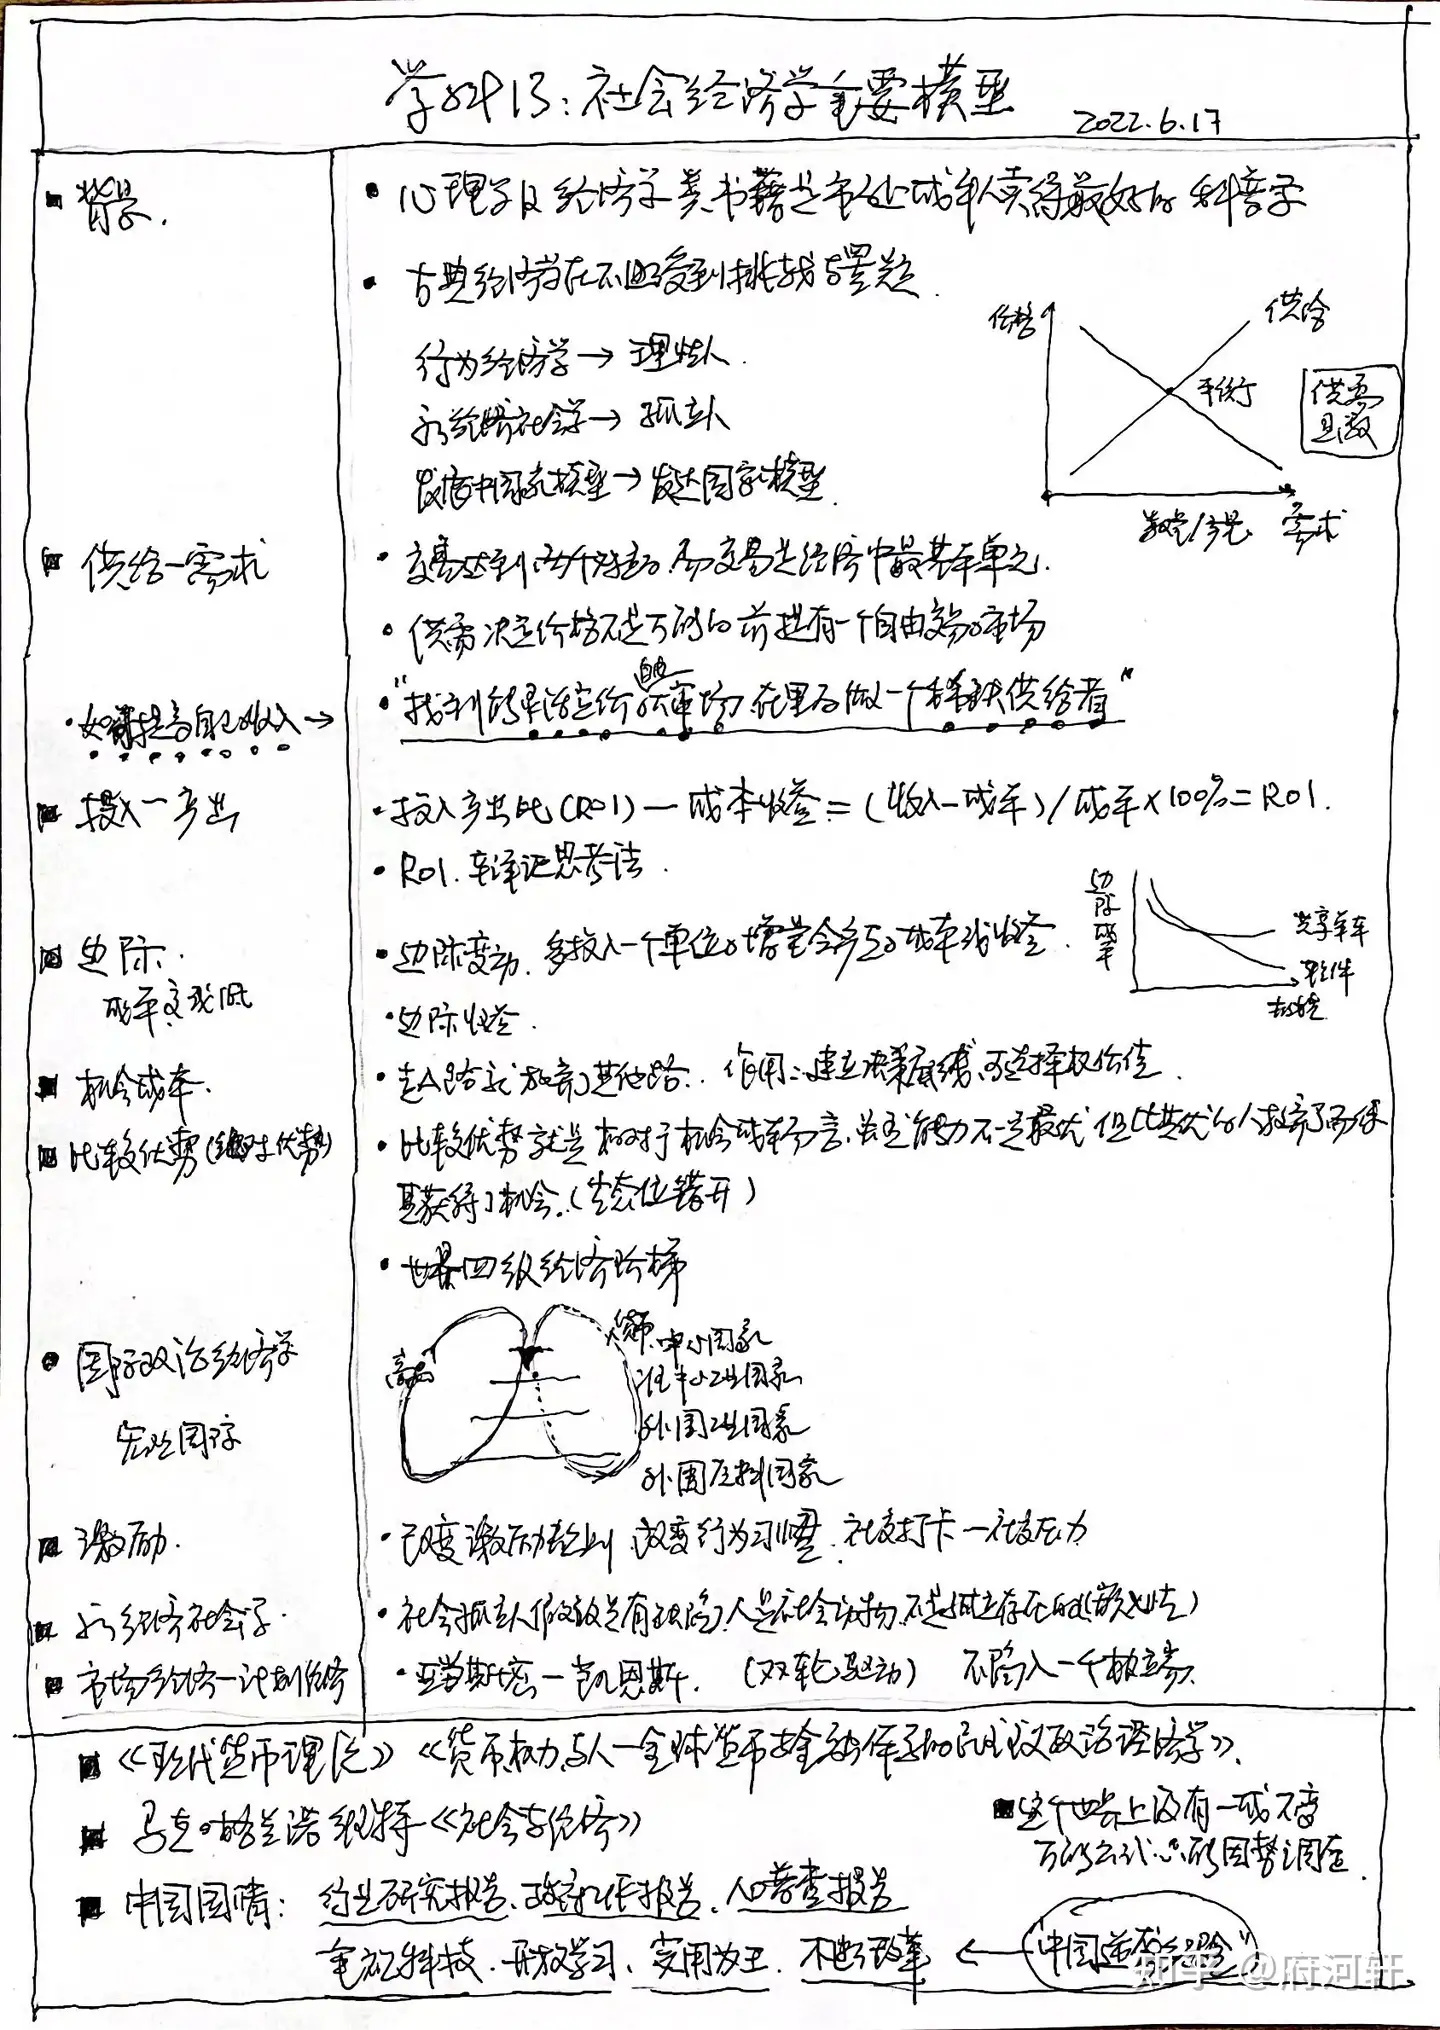 学科13：社会经济学重要模型
2022.6.17
背景.
心理学及经济学类书籍是书处成年人卖得最好的科普学
古典经济学在不断受到挑战与置疑.
行为经济学→理性人.
新经济社会学→孤立人
发展中国家模型→发达国家模型.
价格
供给
平衡
供需
函数
数量/产量
需求
供给一需求
交易达到两个对立. 而交易是经济中最基本单元.
供需决定价格不是万能的前提有一个自由交易的市场
如何提高自己的收入→
"找到能灵活定价的自由大市场,在里面做一个稀缺供给者"
投入一产出
投入产出比(ROI)一成本收益=(收入-成本)/成本×100%=ROI.
ROI.笔记思考法.
边际.
成本变现低
边际变动.多投入一个单位的增量会多的成本或收益.
边际收益.
边际成本
共享单车
软件
机会成本.
走A路就放弃了其他路. 作用:建立决策底线,可选择权价值.
比较优势(绝对优势)
比较优势就是相对于机会成本而言,虽然能力不一定最优但比其优的人放弃了而使
其获得了机会.(生态位错开)
世界四级经济阶梯
国际政治经济学
宏观国际
高端
货币.中心国家
准中心工业国家
外围工业国家
外围原料国家
激励.
改变激励规则,改变行为习惯.社交打卡一社交压力
新经济社会学.
社会孤立人假设是有缺陷,人是社会动物,不是孤立存在的(嵌入性)
市场经济一计划经济
亚当斯密一凯恩斯. (双轮驱动) 不陷入一个极端.
《现代货币理论》《货币权力与人一全球货币与金融体系的民主政治经济学》.
马克·格兰诺维特《社会与经济》
这个世界上没有一成不变
万能公式.只能因势调查
中国国情: 行业研究报告、政府工作报告、人口普查报告
重视科技.开放学习、实用为王.不断改革 ← "中国运营经验"
知乎 @府河轩